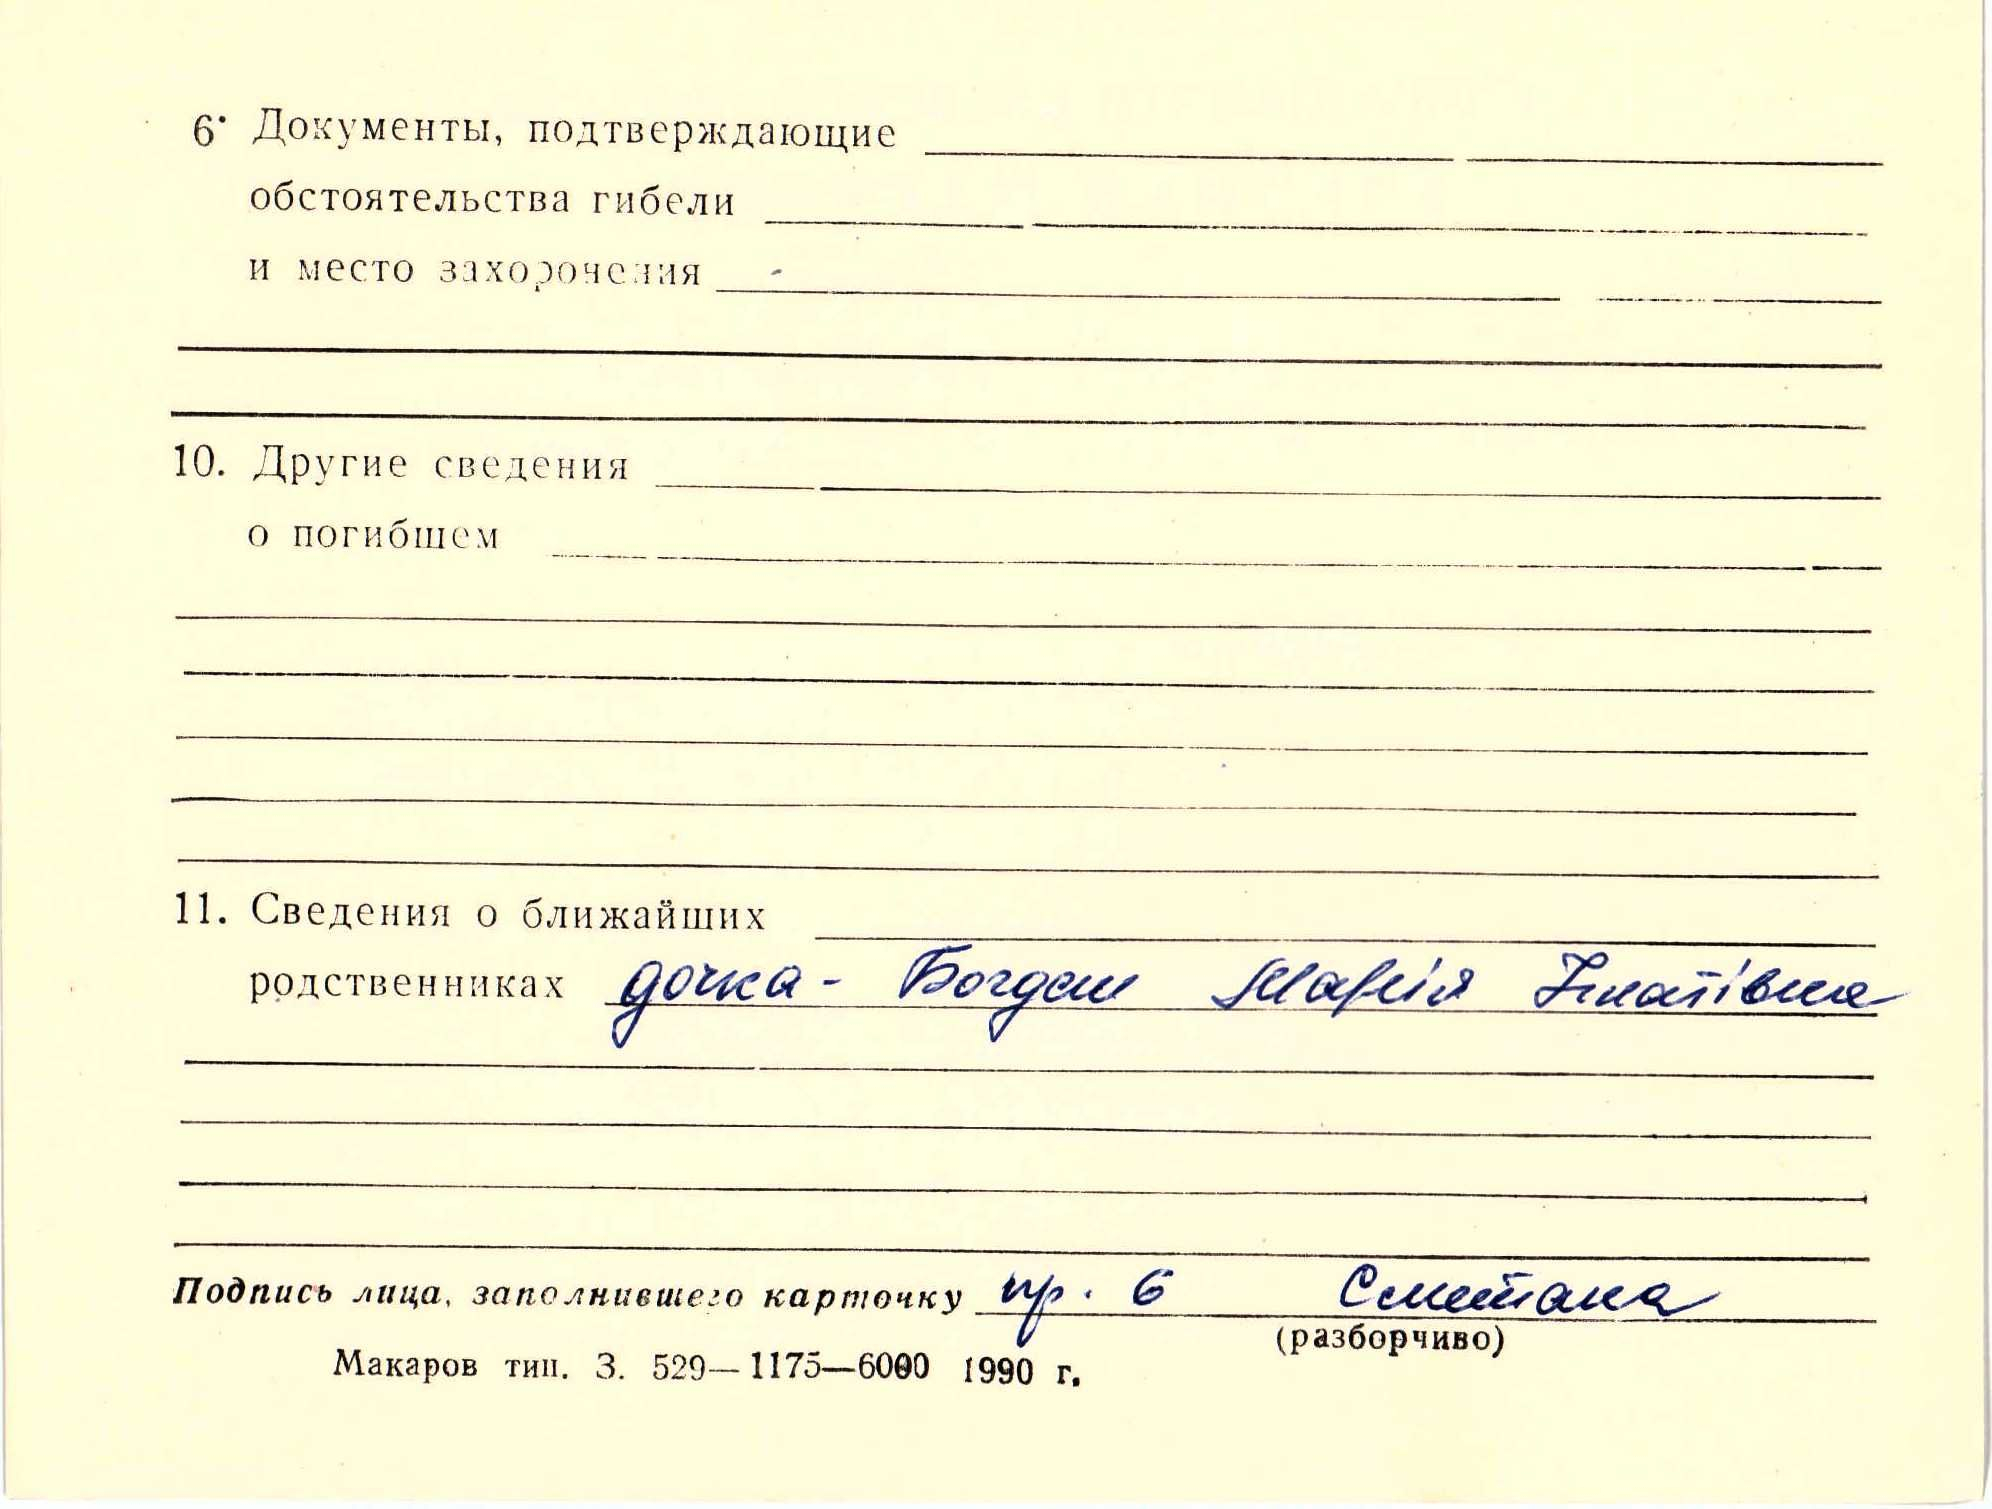 6. Документы, подтверждающие
обстоятельства гибели
и место захоронения -
10. Другие сведения
о погибшем
11. Сведения о ближайших
родственниках дочка - Богдан Марія Ігнатівна
Подпись лица, заполнившего карточку пр. 6 Сметана
(разборчиво)
Макаров тип. З. 529—1175—6000 1990 г.